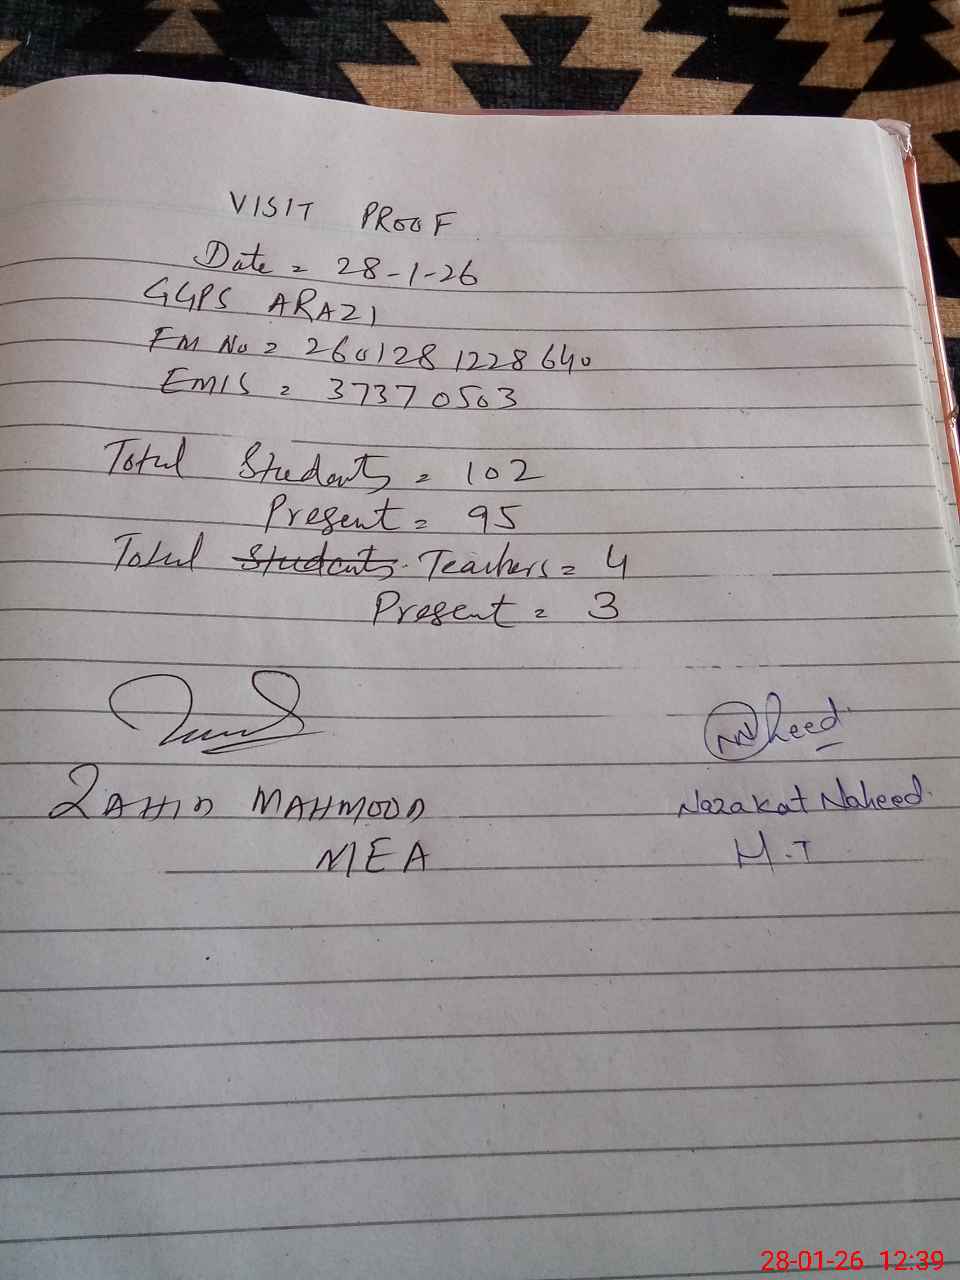 VISIT PROOF
Date = 28-1-26
GGPS ARAZI
FM No = 2601281228640
EMIS = 37370503
Total Students = 102
Present = 95
Total Students Teachers = 4
Present = 3
Naheed
ZAHID MAHMOOD
Nazakat Naheed
MEA
H.T
28-01-26 12:39